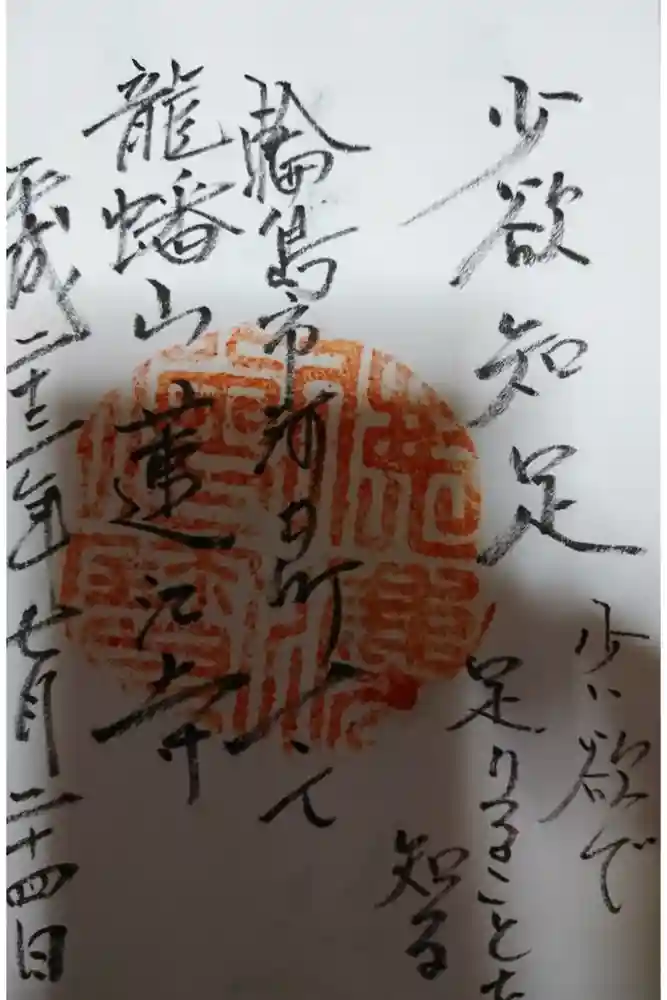 少欲知足
少い欲で
足りることを
知る
輪島市河井町
龍蟠山 蓮江寺
平成二十三年七月二十四日